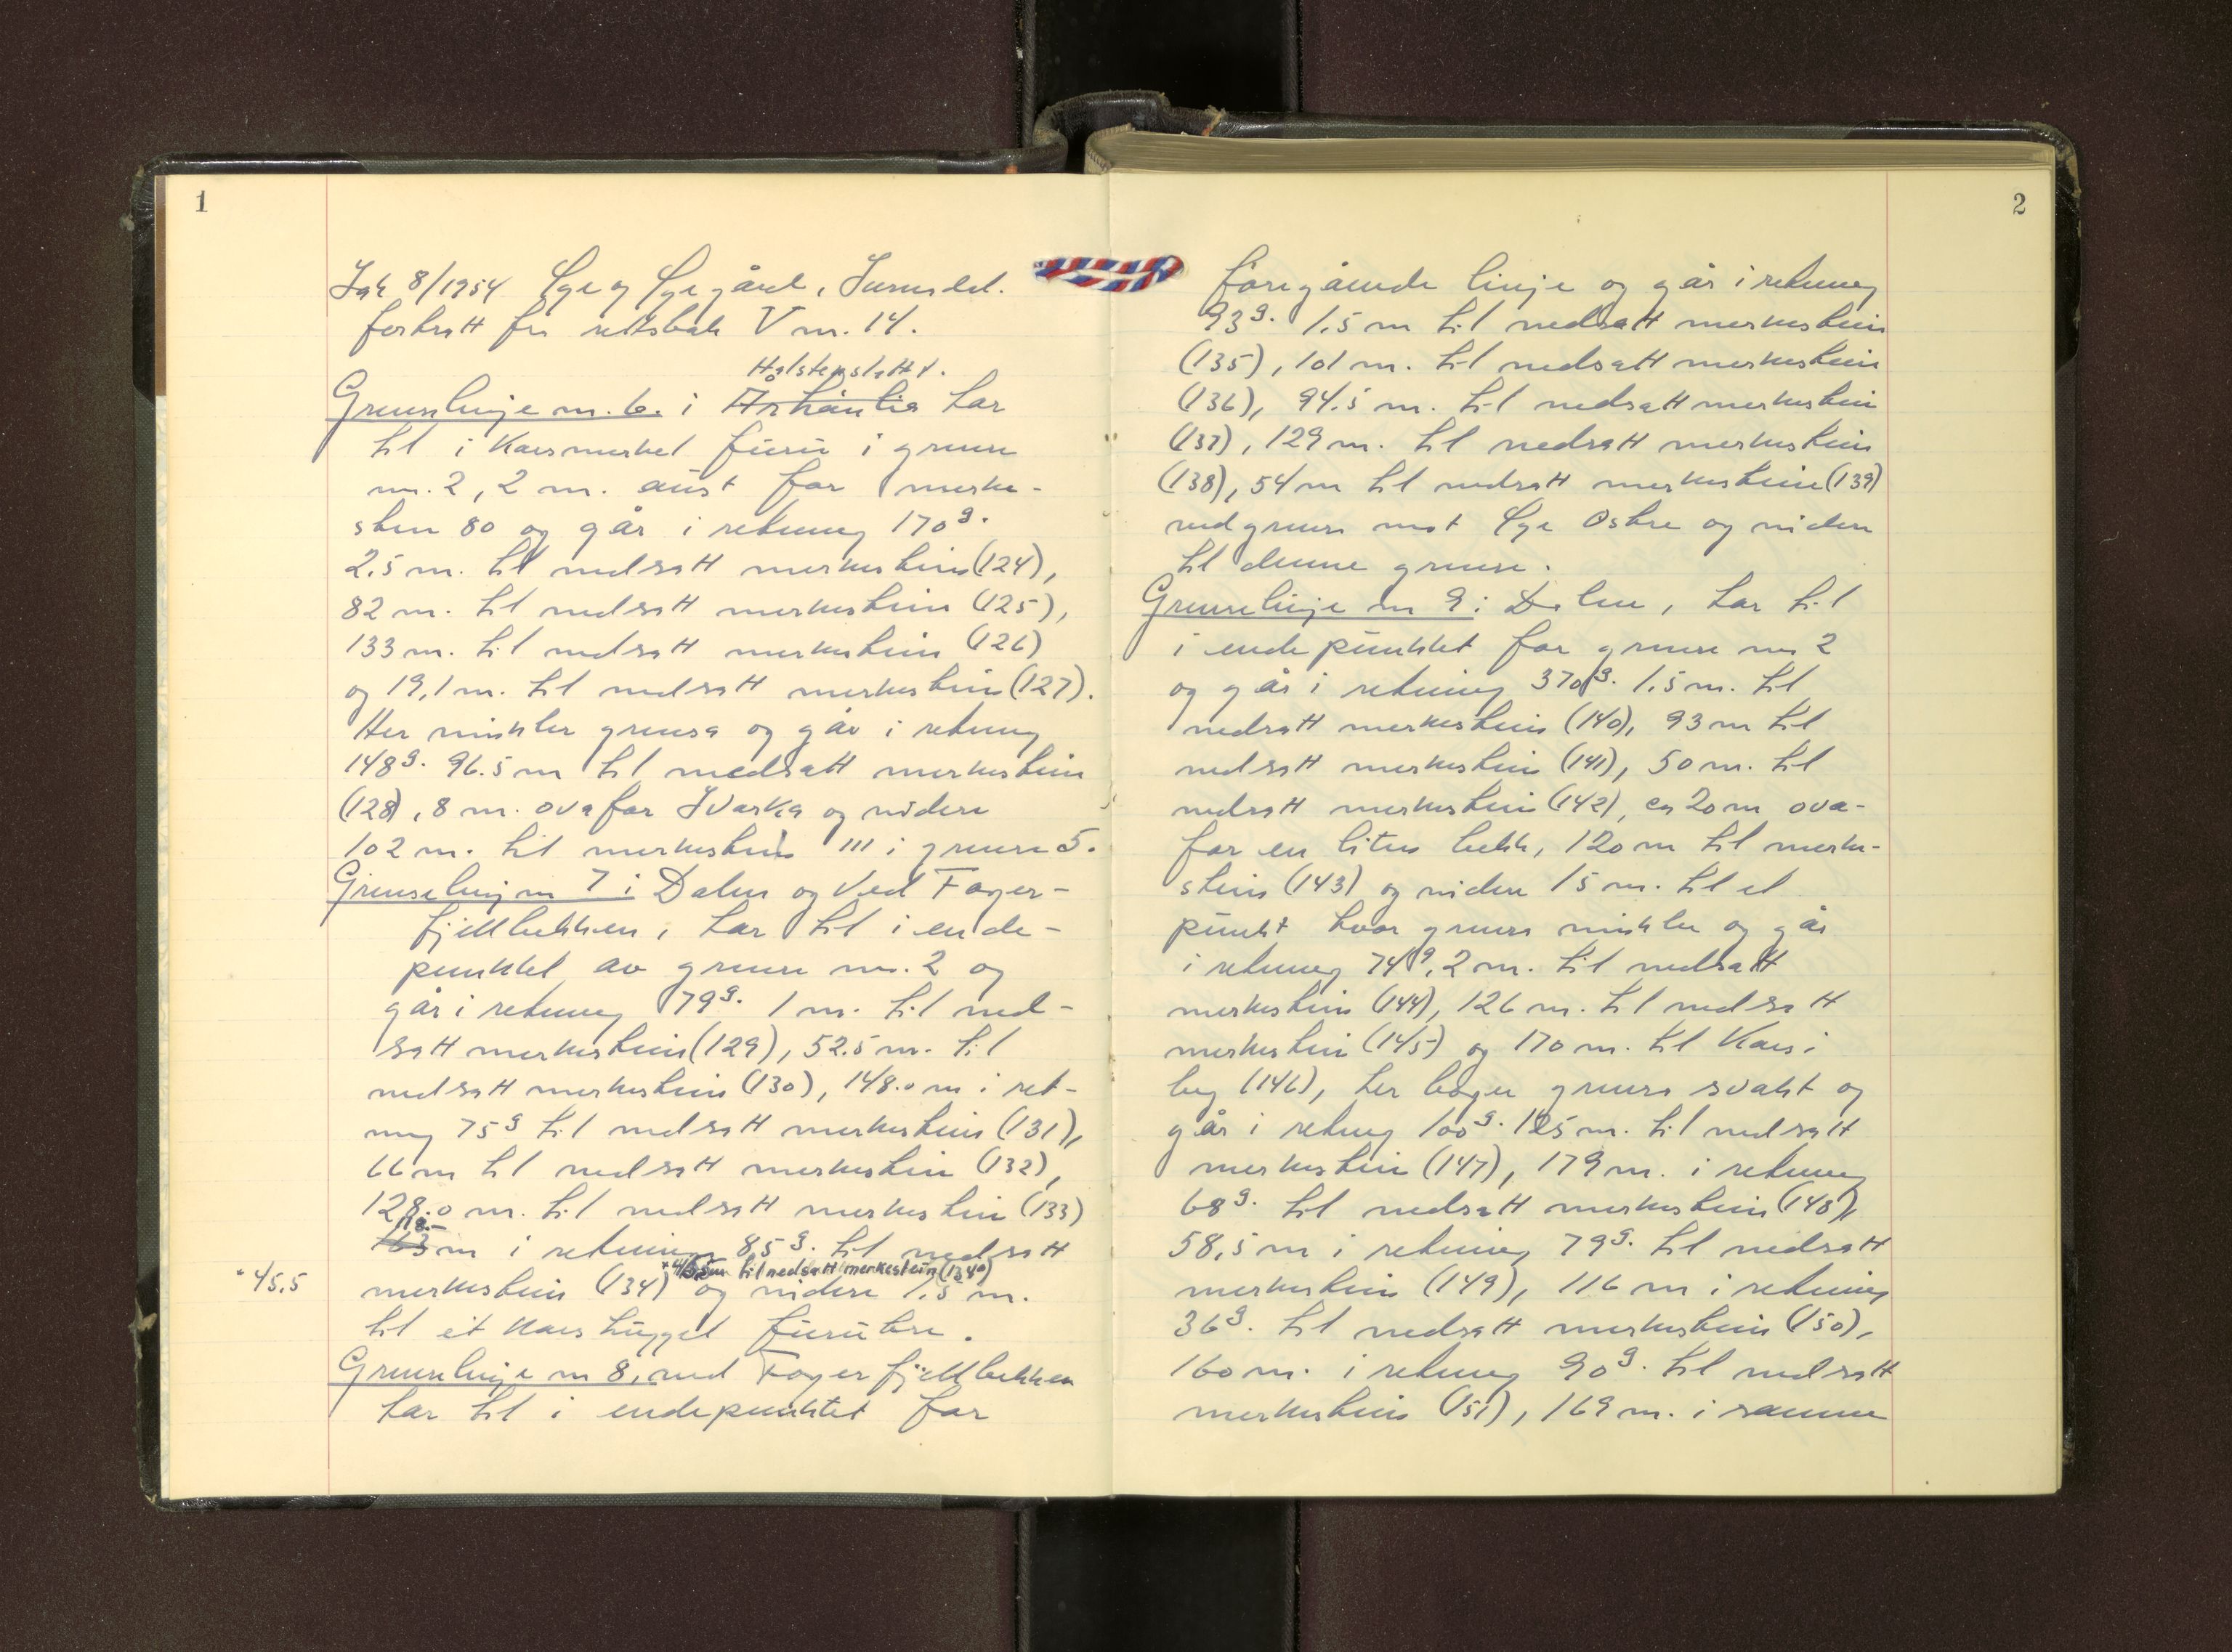 1
Sak 8/1954 Lye og Lyegård, Surnadal.
fortsatt fra rettsbok V nr. 14.
Halstenslættt.
Grenselinje nr. 6. i Årkånlia tar
til i krossmerket furu i grense
nr. 2, 2 m. aust for merke-
sten 80 og går i retning 170g.
2.5 m. til nedsatt merkestein (124),
82 m. til nedsatt merkestein (125),
133 m. til nedsatt merkestein (126)
og 19,1 m. til nedsatt merkestein (127).
Her vinkler grensa og går i retning
148g. 96.5 m til nedsatt merkestein
(128), 8 m. ovafor og videre
102 m. til merkestein 111 i grense 5.
Grenselinje nr 7 i Dalen og ved Fager-
fjellbekken, tar til i ende-
punktet av grense nr. 2 og
går i retning 79g. 1 m. til ned-
satt merkestein (129), 52.5 m. til
nedsatt merkestein (130), 148.0 m i ret-
ning 75g til nedsatt merkestein (131),
66 m til nedsatt merkestein (132),
128.0 m. til nedsatt merkestein (133)
118.-
163 m i retning 85g. til nedsatt
*45.5 m til nedsatt merkestein (134a)
* 45.5
merkestein (134) og videre 1.5 m.
til eit kross hugget furutre.
Grenselinje nr 8, ved Fagerfjellbekken
tar til i endepunktet for
2
foregående linje og går i retning
93g. 1.5 m til nedsatt merkestein
(135), 101 m. til nedsatt merkestein
(136), 94.5 m. til nedsatt merkestein
(137), 129 m. til nedsatt merkestein
(138), 54 m til nedsatt merkestein (139)
ved grensa mot Lye Østre og viden
til denne grense.
Grenselinje nr 9 i Dalen, tar til
i endepunktet for grense nr 2
og går i retning 370g. 1.5 m. til
nedsatt merkestein (140), 93 m til
nedsatt merkestein (141), 50 m. til
nedsatt merkestein (142), ca 20 m ova-
for en liten bekk, 120 m til merke-
stein (143) og videre 15 m. til et
punkt hvor grensa vinkler og går
i retning 74g, 2 m. til nedsatt
merkestein (144), 126 m. til nedsatt
merkestein (145) og 170 m. til kross i
berg (146), her bøyer grensa svakt og
går i retning 100g. 125 m. til nedsatt
merkestein (147), 179 m. i retning
68g. til nedsatt merkestein (148),
58,5 m i retning 79g. til nedsatt
merkestein (149), 116 m i retning
36g. til nedsatt merkestein (150),
160 m. i retning 90g. til nedsatt
merkestein (151), 169 m. i samme